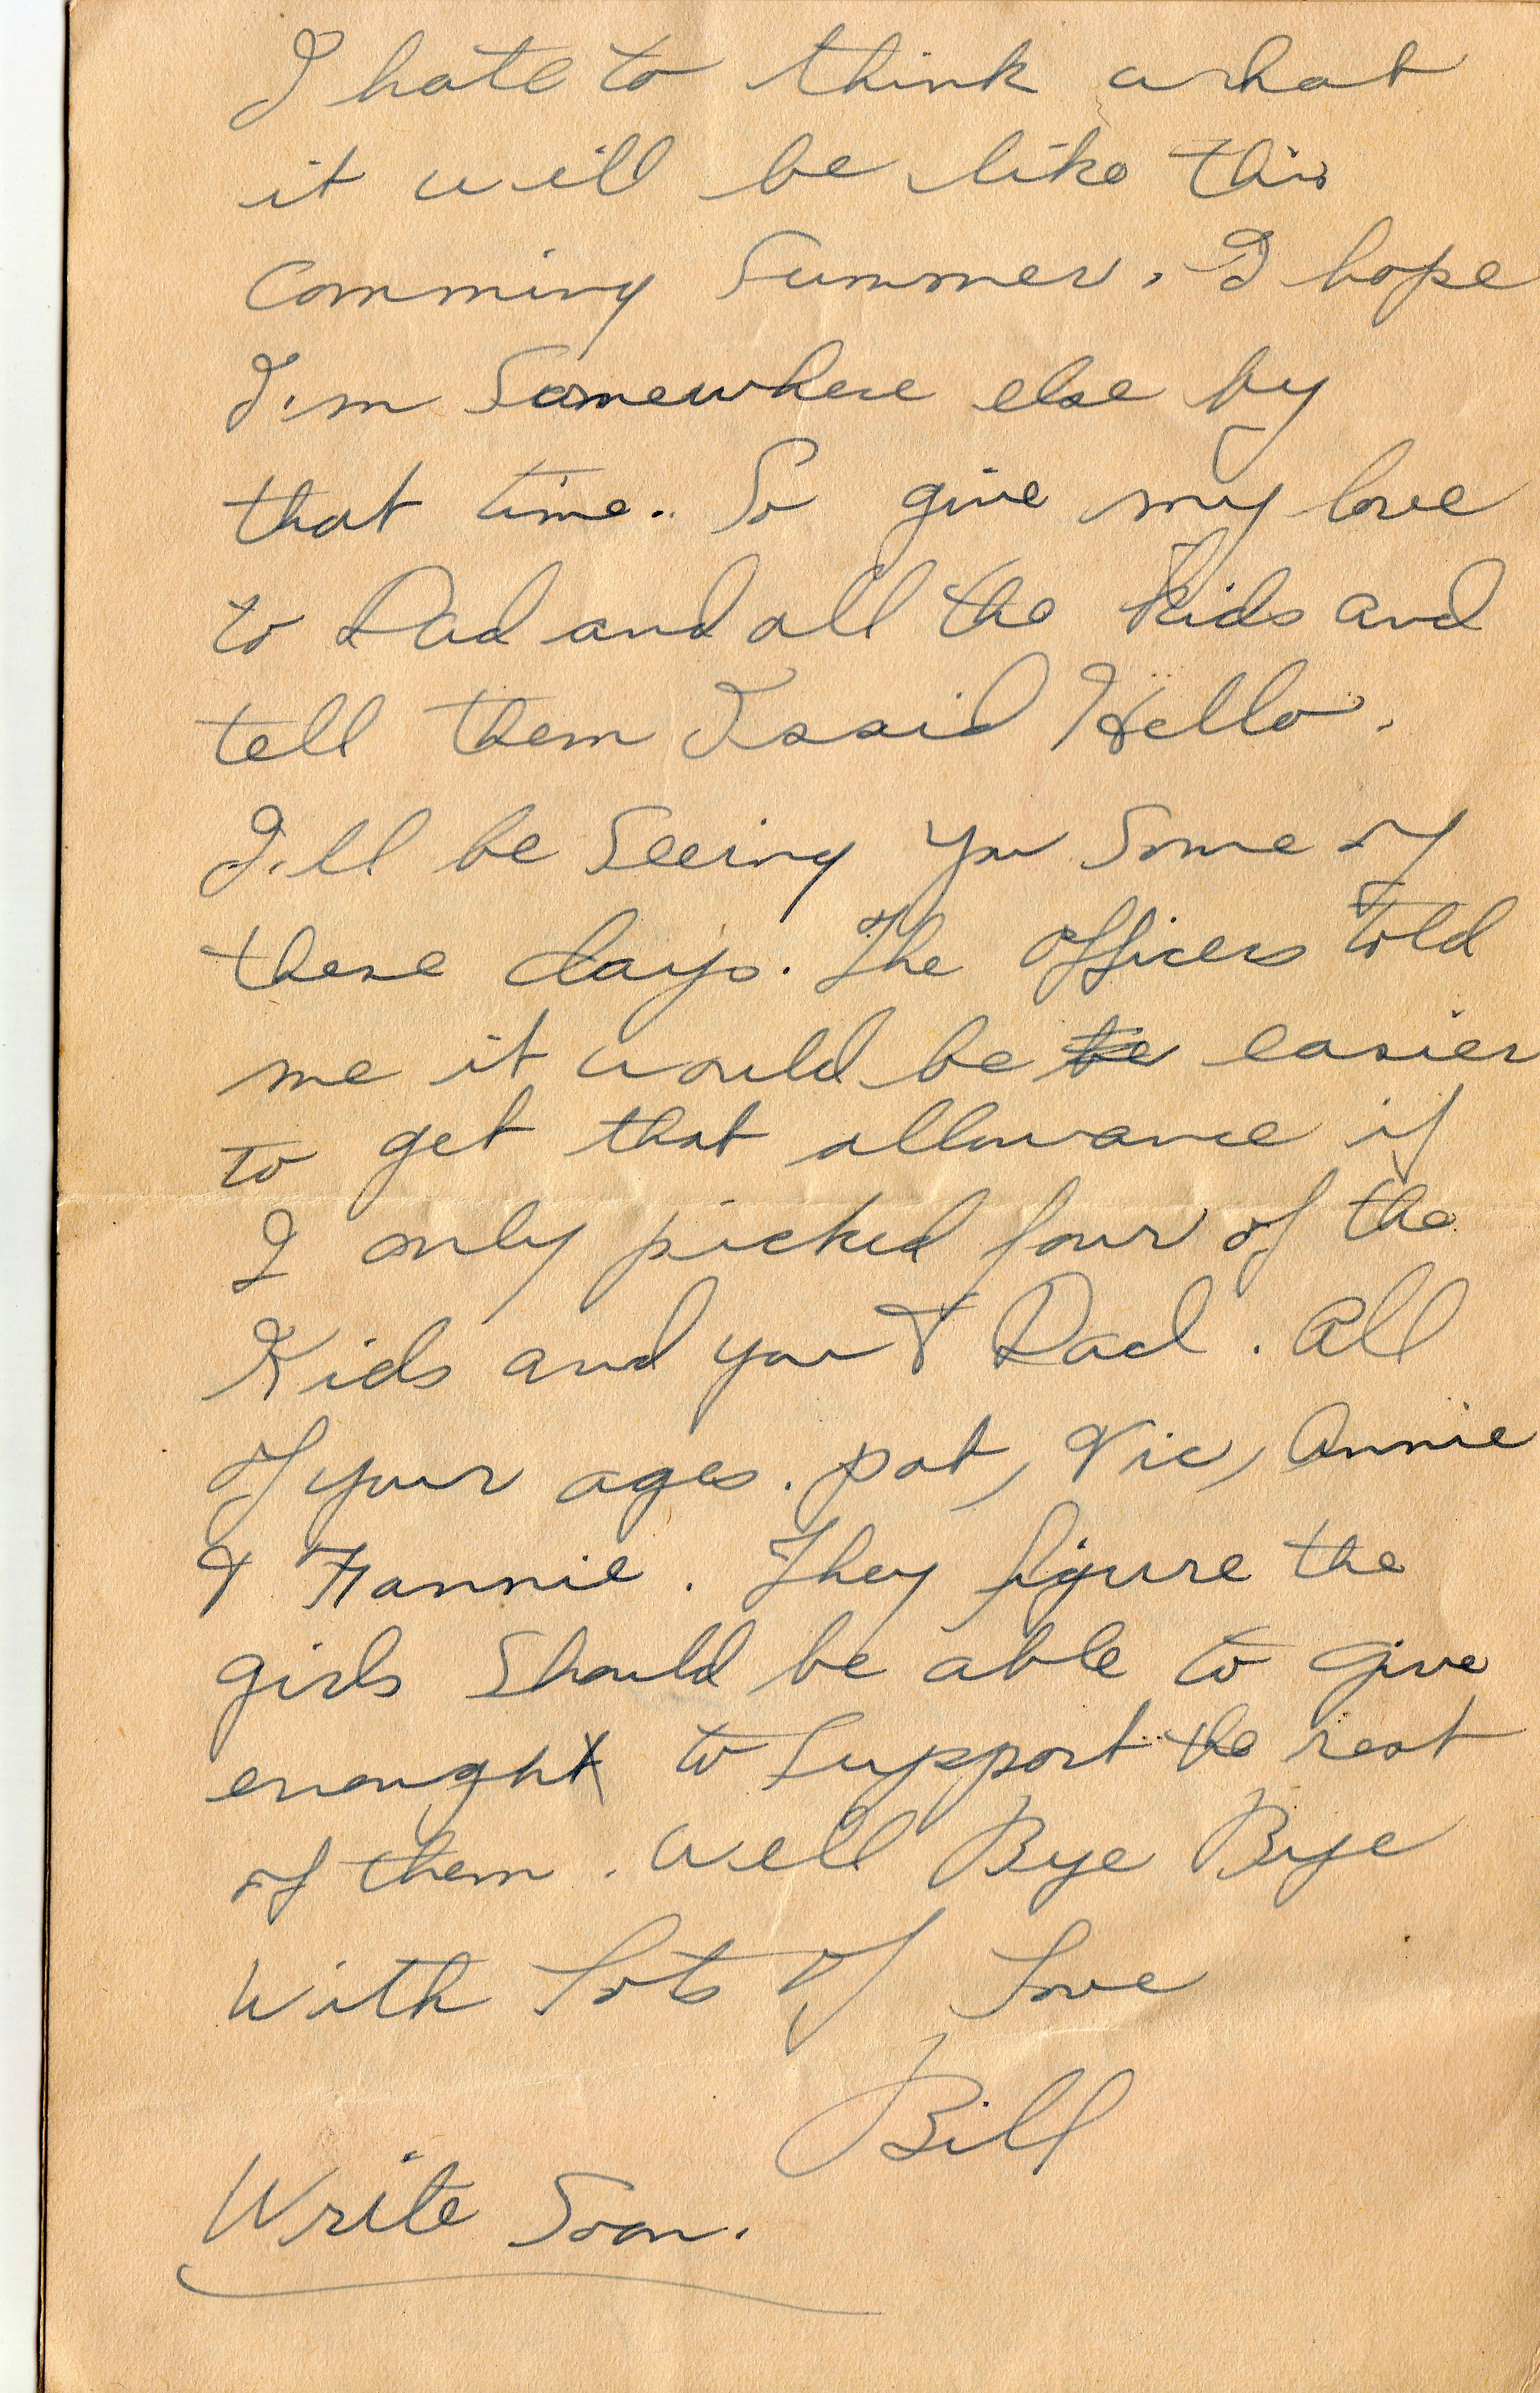 I hate to think what
it will be like this
Comming Summer. I hope
I'm Somewhere else by
that time. So give my love
to Dad and all the kids and
tell them I said Hello.
I'll be Seeing you Some of
these days. The officers told
me it would be be easier
to get that allowance if
I only picked four of the
Kids and you & Dad. All
of your ages. pat, Vic, Annie
& Fannie. They figure the
girls Should be able to give
enough to Support the rest
of them. Well Bye Bye
With Lots of Love
Bill
Write Soon.